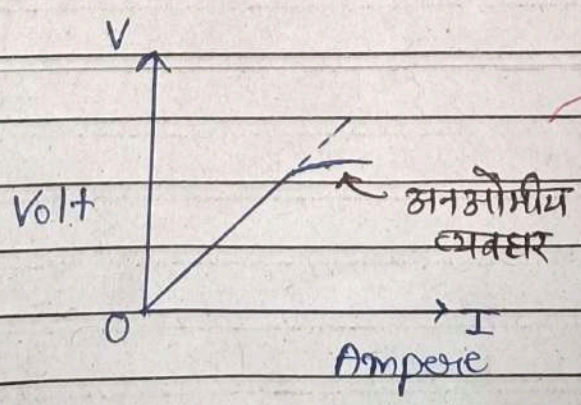 V
Volt
अनओमीय
व्यवहार
O
I
Ampere